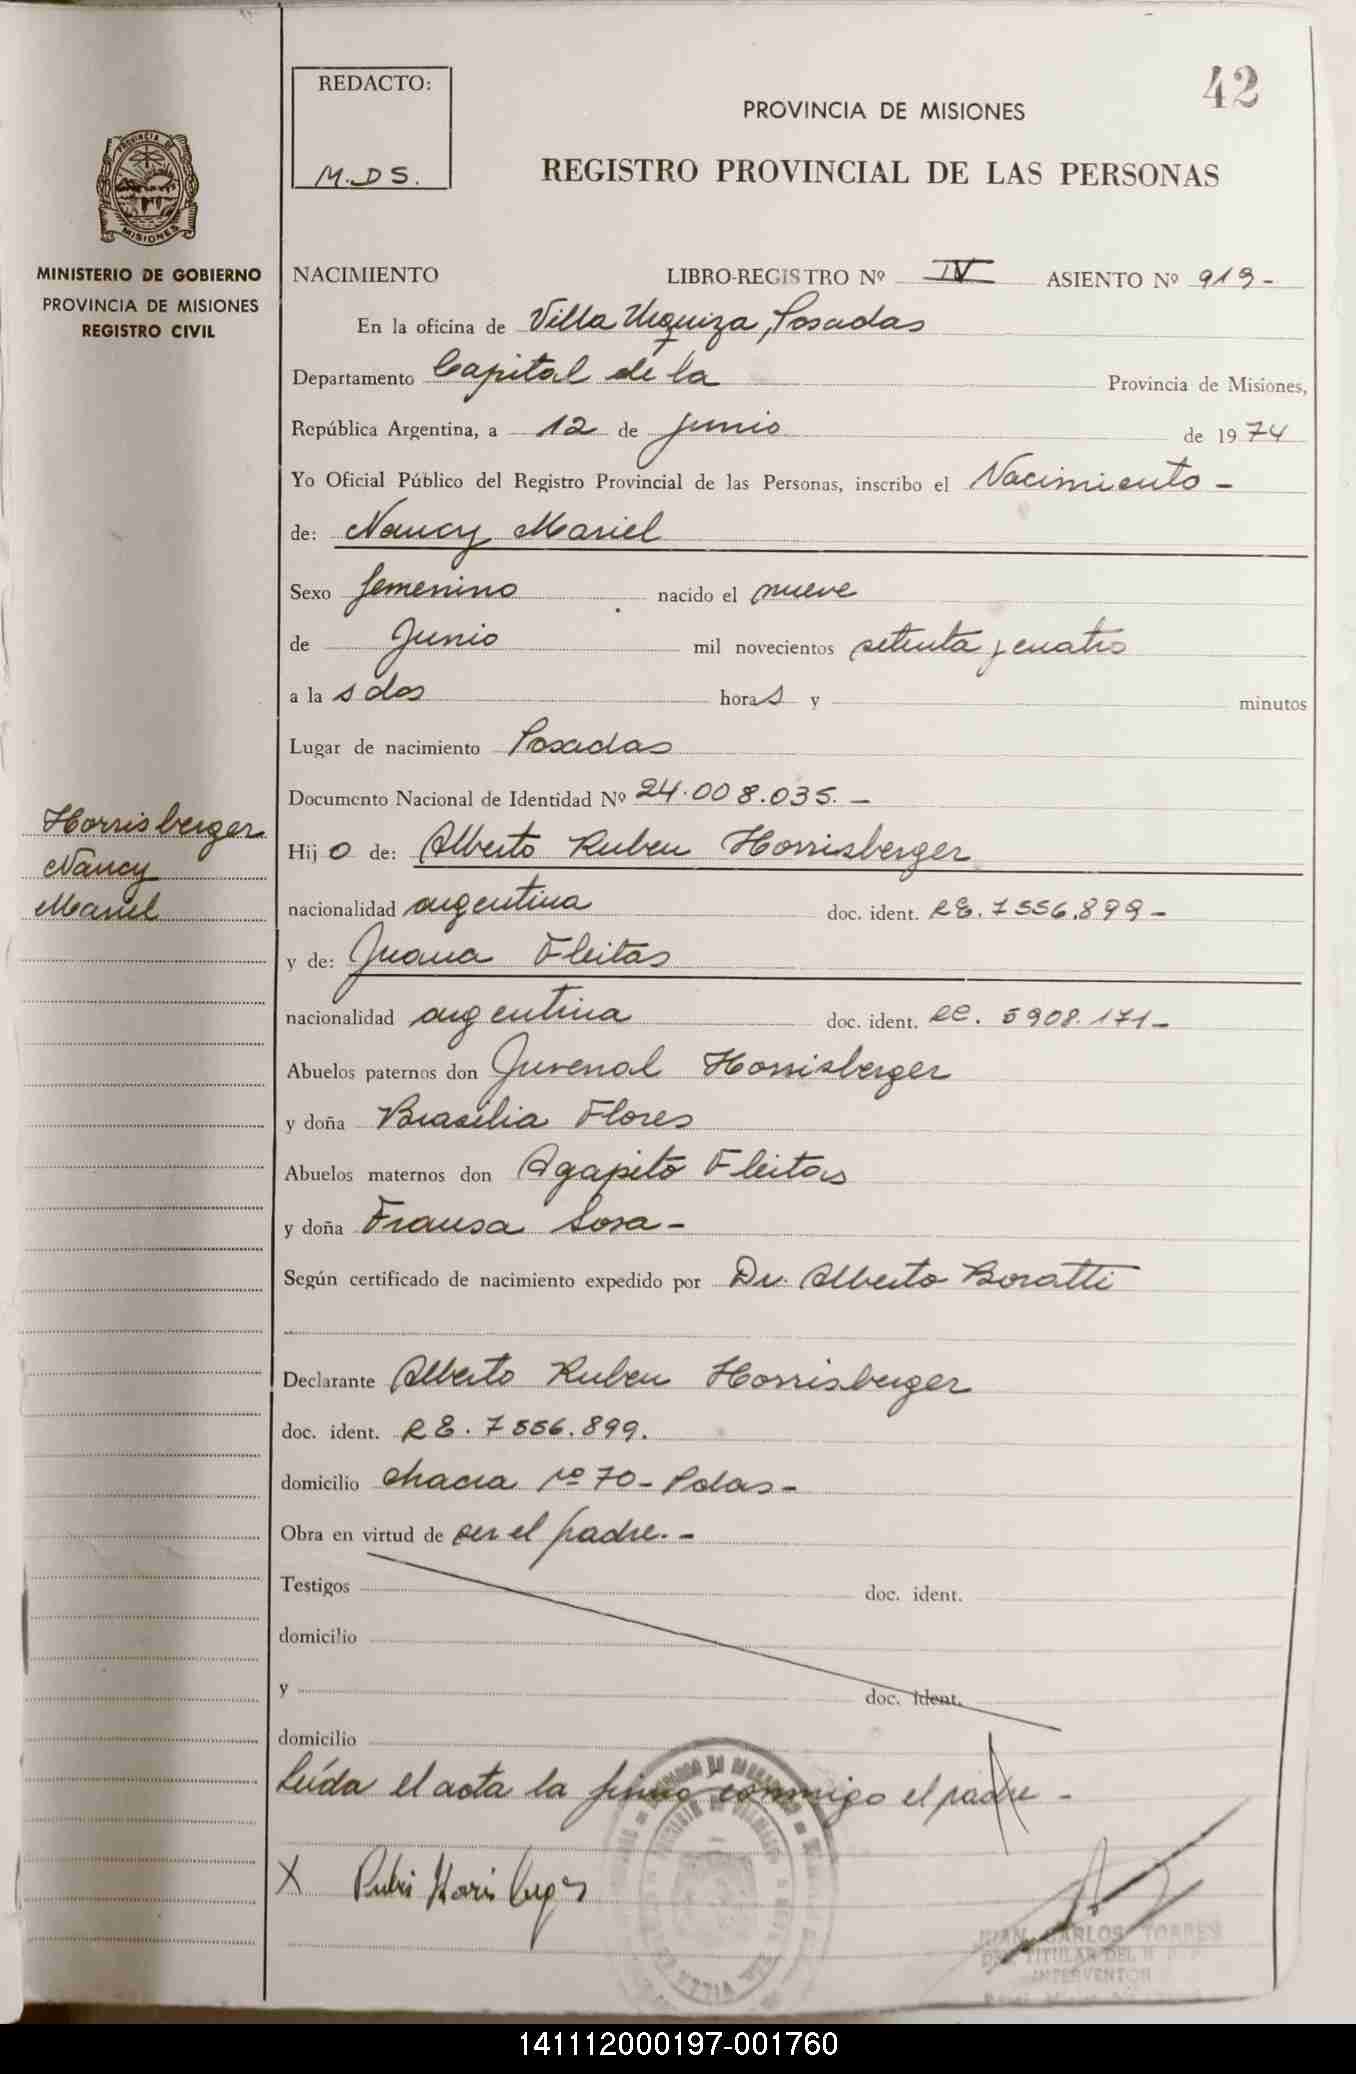 42
REDACTO:
M.D S.
PROVINCIA DE MISIONES
REGISTRO PROVINCIAL DE LAS PERSONAS
PROVINCIA DE
MISIONES
MINISTERIO DE GOBIERNO
PROVINCIA DE MISIONES
REGISTRO CIVIL
NACIMIENTO LIBRO-REGISTRO Nº IV ASIENTO Nº 919-
En la oficina de Villa Urquiza, Posadas
Departamento Capital de la Provincia de Misiones,
República Argentina, a 12 de junio de 1974
Yo Oficial Público del Registro Provincial de las Personas, inscribo el Nacimiento -
de: Nancy Mariel
Sexo femenino nacido el nueve
de Junio mil novecientos setenta y cuatro
a la s dos horas y minutos
Lugar de nacimiento Posadas
Documento Nacional de Identidad Nº 24.008.035. -
Horrisberger
Nancy
Mariel
Hij o de: Alberto Ruben Horrisberger
nacionalidad argentina doc. ident. LE. 7556.899-
y de: Juana Fleitas
nacionalidad argentina doc. ident. LC. 5908.171-
Abuelos paternos don Juvenal Horrisberger
y doña Brasilia Flores
Abuelos maternos don Agapito Fleitas
y doña Fransa Sosa-
Según certificado de nacimiento expedido por Dr. Alberto Boratti
Declarante Alberto Ruben Horrisberger
doc. ident. LE. 7556.899.
domicilio chacra nº 70- Pdas-
Obra en virtud de ser el padre. -
Testigos doc. ident.
domicilio
y doc. ident.
domicilio
Leída el acta la firma conmigo el padre -
X
JUAN CARLOS TORRES
TITULAR DEL
INTERVENTOR
141112000197-001760